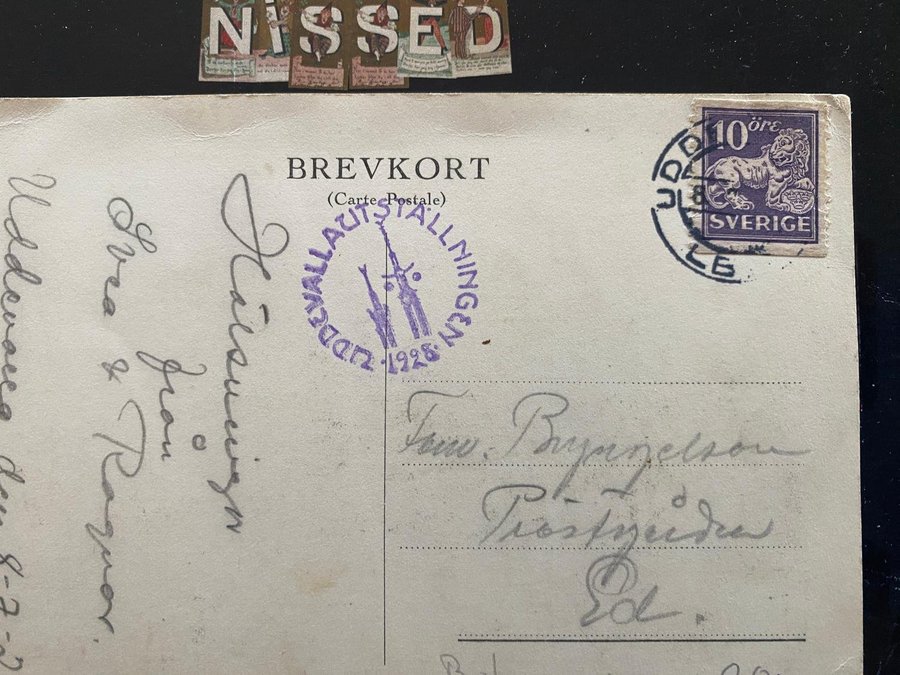 NiSSED
BREVKORT
(Carte Postale)
10 öre
SVERIGE
UDDE
8
LB
UDDEVALLAUTSTÄLLNINGEN
· 1928 ·
Hälsningar
från
Svea & Ragnar.
Uddevalla den 8-7-2
Fam. Bryngelson
Prostgården
Ed.